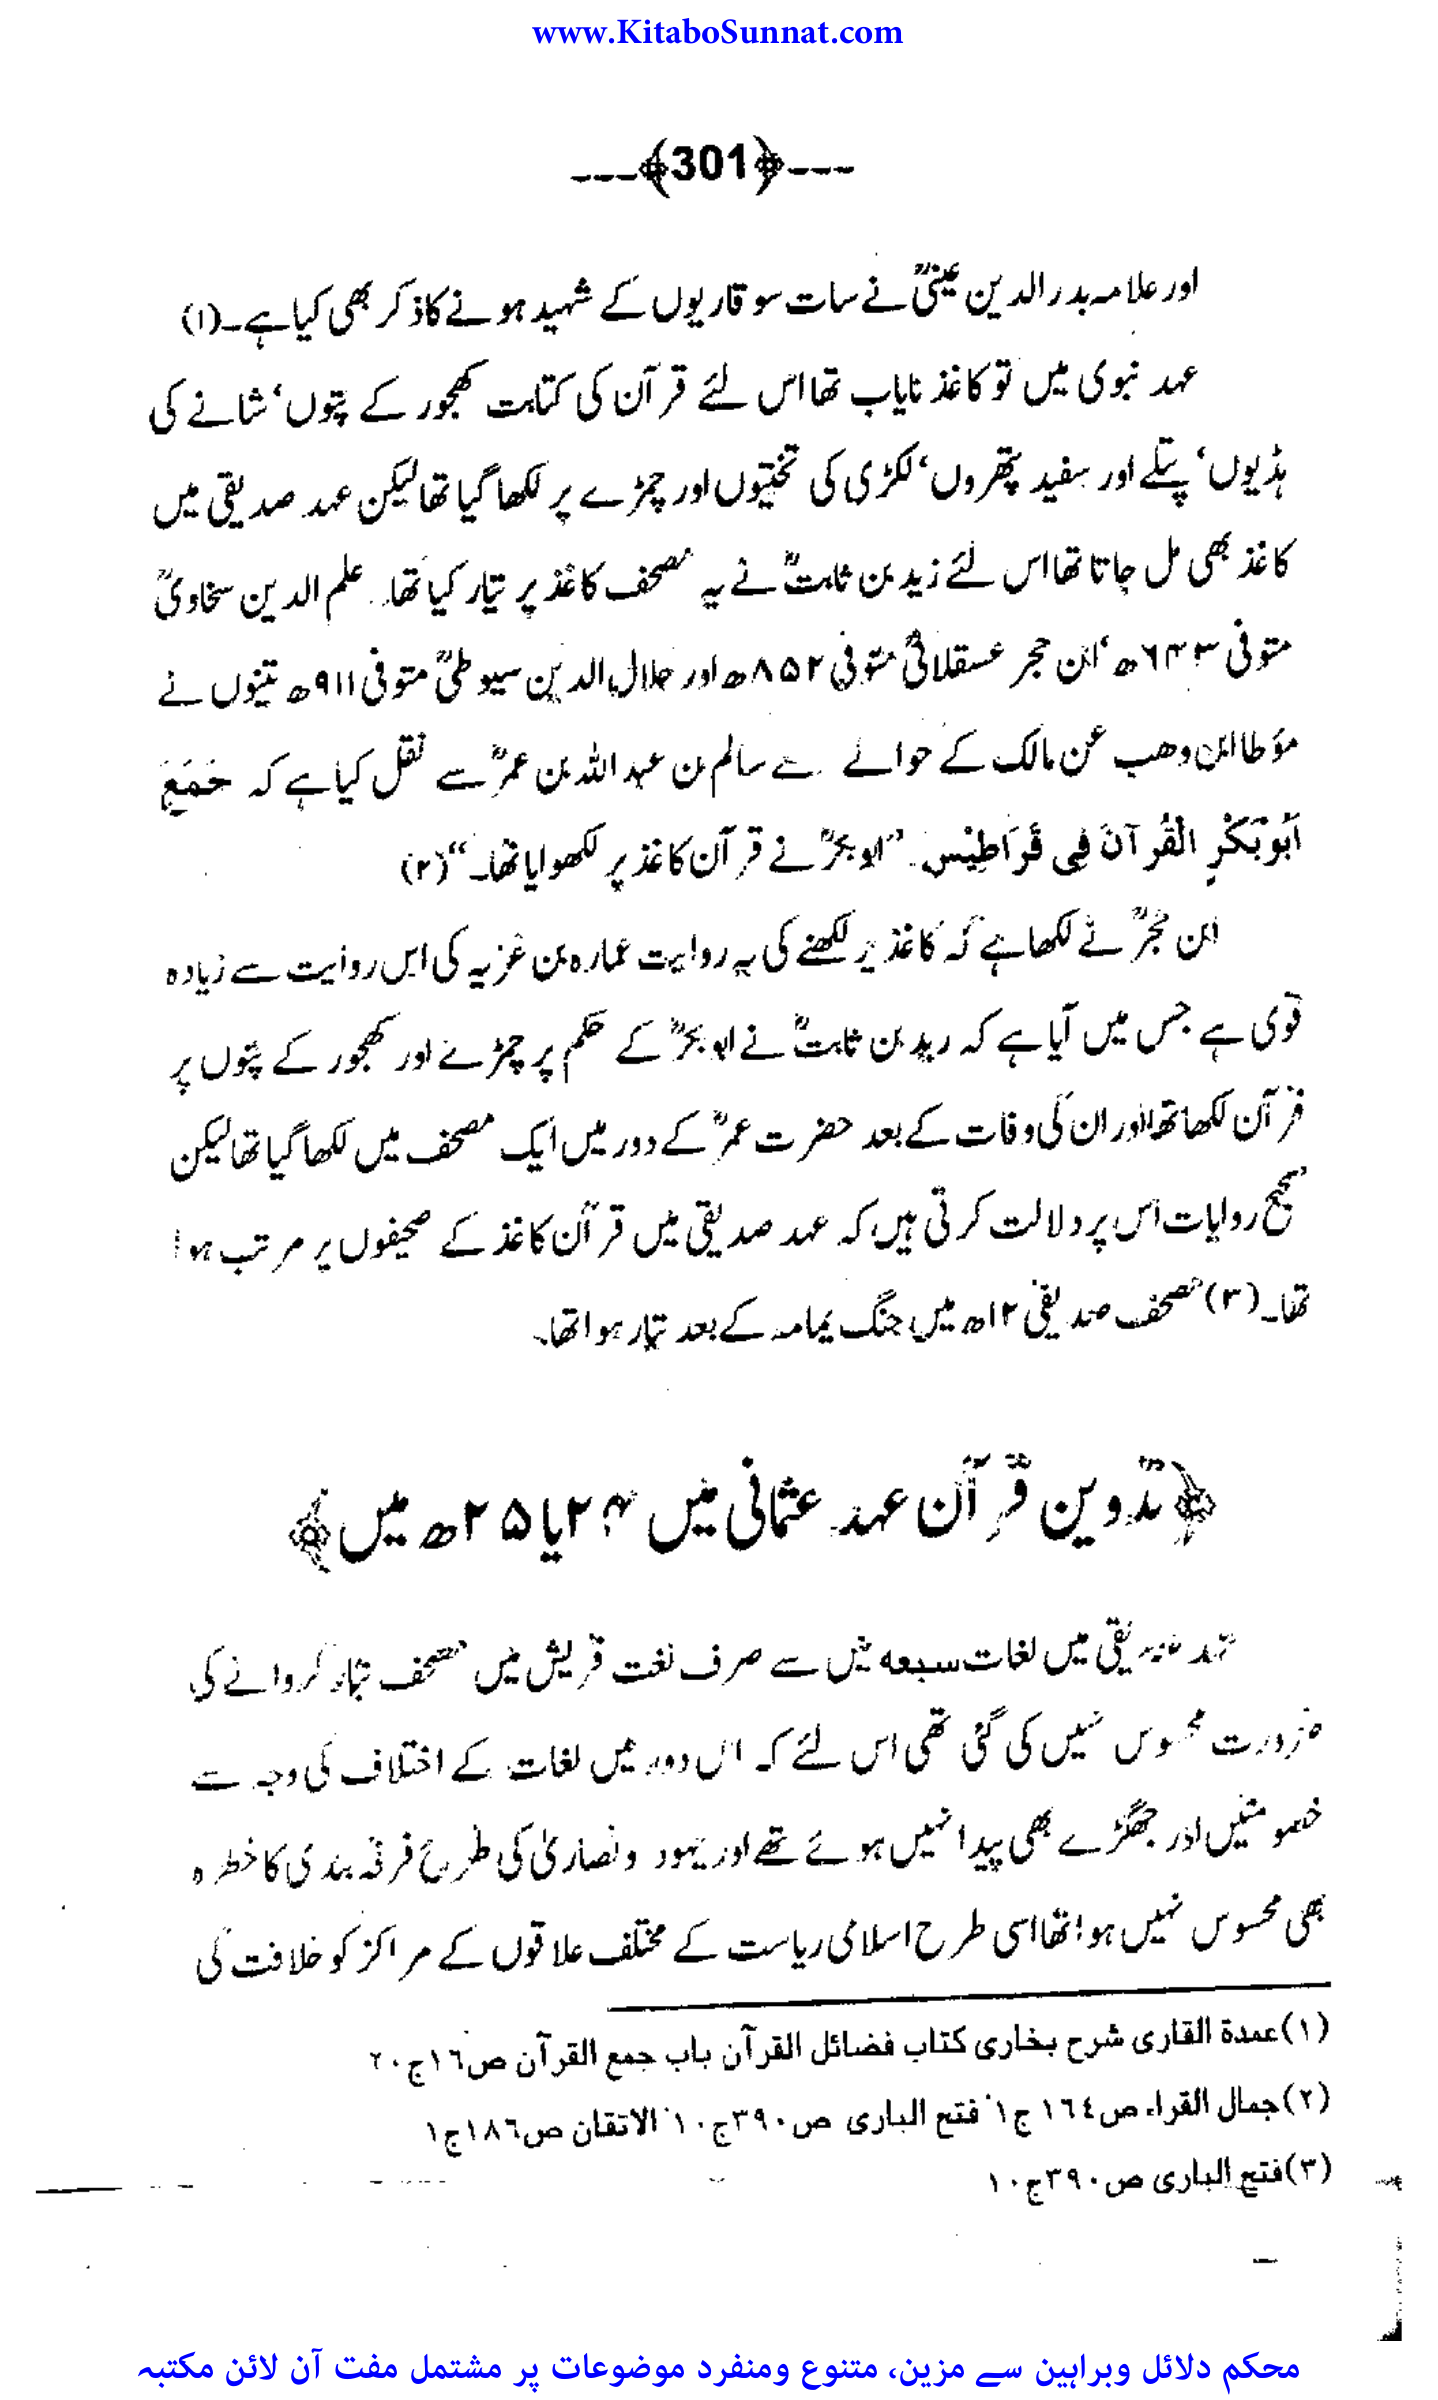 www.KitaboSunnat.com
---﴿301﴾---
اور علامہ بدر الدین عینیؒ نے سات سو قاریوں کے شہید ہونے کا ذکر بھی کیا ہے۔(۱)
عہد نبوی میں تو کاغذ نایاب تھا اس لئے قرآن کی کتابت کھجور کے پتوں‘ شانے کی
ہڈیوں‘ پتلے اور سفید پتھروں‘ لکڑی کی تختیوں اور چمڑے پر لکھا گیا تھا لیکن عہد صدیقی میں
کاغذ بھی مل جاتا تھا اس لئے زید بن ثابتؓ نے یہ مصحف کاغذ پر تیار کیا تھا۔ علم الدین سخاویؒ
متوفی ۶۴۳ھ‘ ابن حجر عسقلانیؒ متوفی ۸۵۲ھ اور جلال الدین سیوطیؒ متوفی ۹۱۱ھ تینوں نے
مؤطا ابن وھب عن مالک کے حوالے سے سالم بن عبد اللہ بن عمرؓ سے نقل کیا ہے کہ جَمَعَ
اَبُوبَکْرٍ الْقُرآنَ فِی قَرَاطِیْسِ۔ ”ابو بکرؓ نے قرآن کاغذ پر لکھوایا تھا۔“ (۲)
ابن حجرؒ نے لکھا ہے کہ کاغذ پر لکھنے کی یہ روایت عمارہ بن غزیہ کی اس روایت سے زیادہ
قوی ہے جس میں آیا ہے کہ زید بن ثابتؓ نے ابو بکرؓ کے حکم پر چمڑے اور کھجور کے پتوں پر
قرآن لکھا تھا اور ان کی وفات کے بعد حضرت عمرؓ کے دور میں ایک مصحف میں لکھا گیا تھا لیکن
صحیح روایات اس پر دلالت کرتی ہیں کہ عہد صدیقی میں قرآن کاغذ کے صحیفوں پر مرتب ہوا
تھا۔ (۳) مصحف صدیقی ۱۲ھ میں جنگ یمامہ کے بعد تیار ہوا تھا۔
﴿تدوین قرآن عہد عثمانی میں ۲۴ یا ۲۵ھ میں﴾
عہد صدیقی میں لغات سبعہ میں سے صرف لغت قریش میں مصحف تیار کروانے کی
ضرورت محسوس نہیں کی گئی تھی اس لئے کہ اس دور میں لغات کے اختلاف کی وجہ سے
خصومتیں اور جھگڑے بھی پیدا نہیں ہوئے تھے اور یہود ونصاریٰ کی طرح فرقہ بندی کا خطرہ
بھی محسوس نہیں ہوا تھا اسی طرح اسلامی ریاست کے مختلف علاقوں کے مراکز کو خلافت کی
(۱)عمدۃ القاری شرح بخاری کتاب فضائل القرآن باب جمع القرآن ص١٦ج٢٠
(۲)جمال القراء ص١٦٤ ج١‘ فتح الباری ص٣٩٠ج١٠‘ الاتقان ص١٨٦ج١
(۳)فتح الباری ص٣٩٠ج١٠
محکم دلائل وبراہین سے مزین، متنوع ومنفرد موضوعات پر مشتمل مفت آن لائن مکتبہ